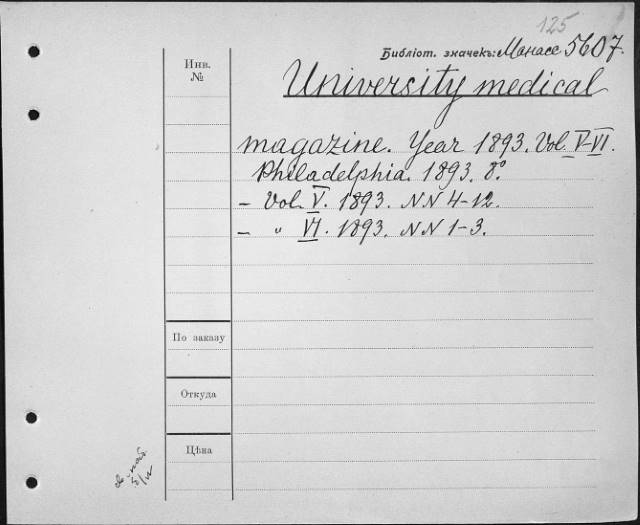 125
Библіот. значекъ: Манассе 5607.
Инв.
№
University medical
magazine. Year 1893. Vol. V-VI.
Philadelphia. 1893. 8°.
— Vol. V. 1893. NN 4-12.
— " VI. 1893. NN 1-3.
По заказу
Откуда
Цѣна